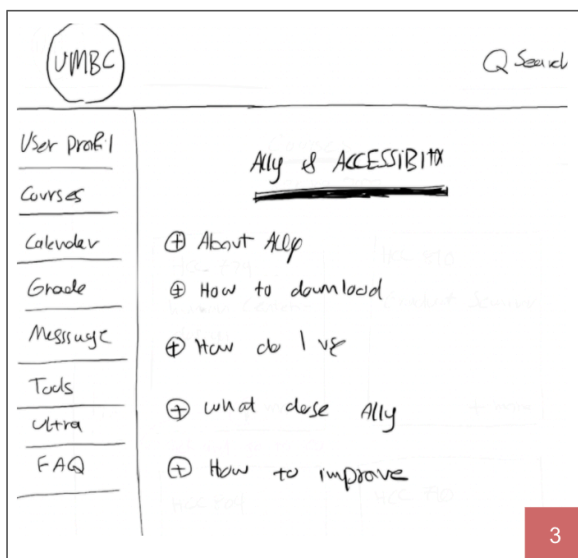 UMBC
Search
User Profil
Courses
Calendar
Grade
Messsage
Tools
Ultra
FAQ
Ally & ACCESSiBitx
About Ally
How to download
How do I use
what dose Ally
How to improve
3